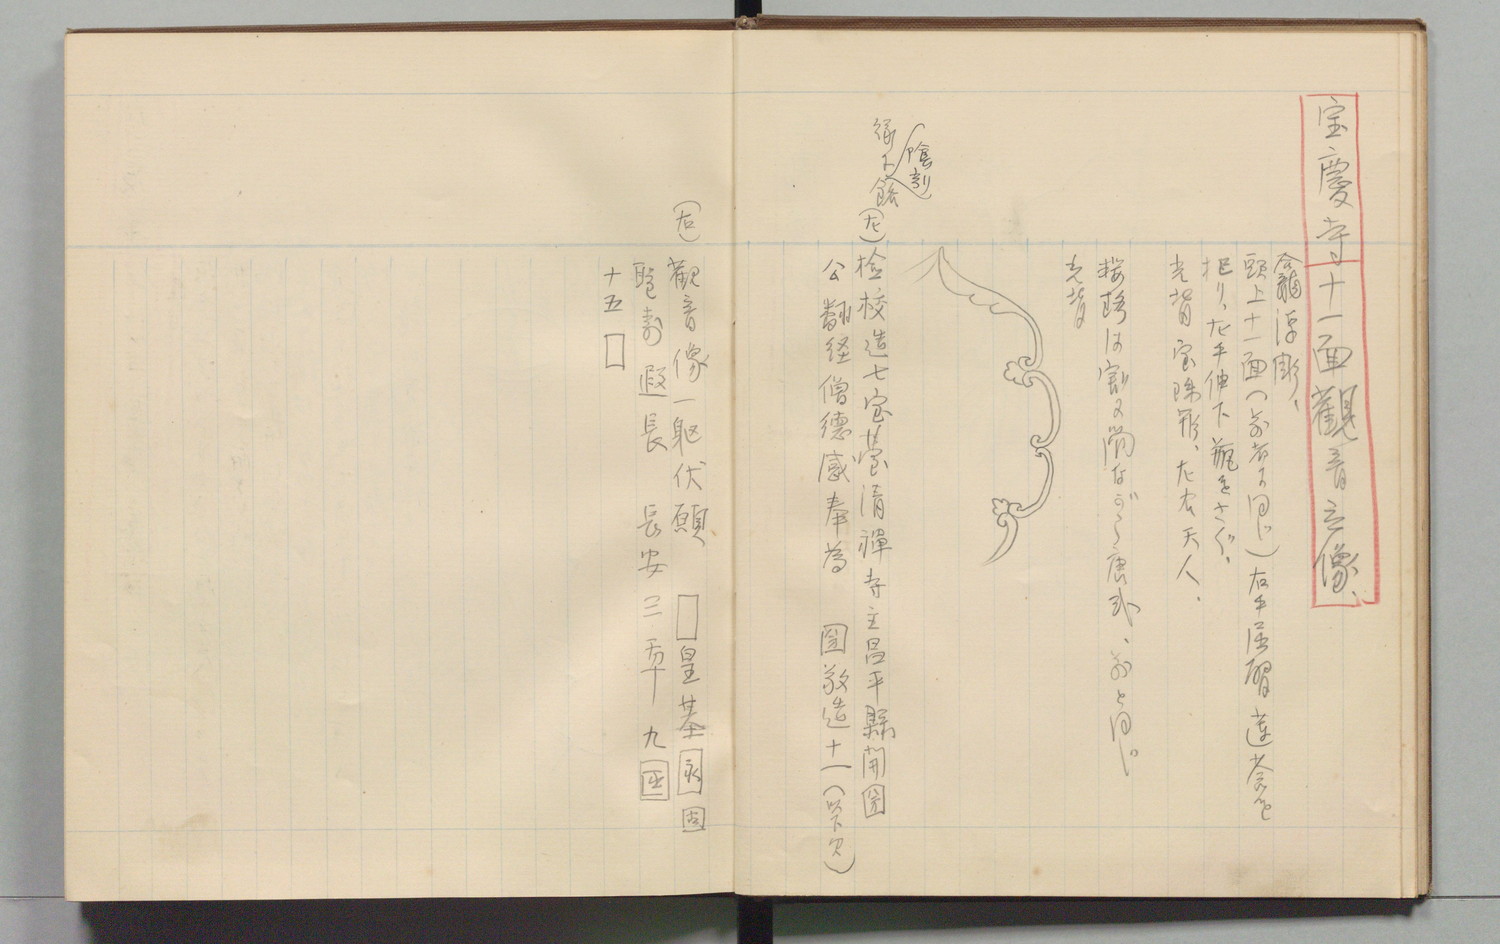 宝慶寺十一面観音立像、
龕浮彫、
頭上十一面(前者に同じ)右手屈臂蓮茎を
把り、左手伸下瓶をさぐ、
光背宝珠形、左右天人、
瓔珞は割に簡ながら唐式、前と同じ
光背
(陰刻)
縁に銘
(左)検校造七宝薹清禪寺主昌平縣開国
公翻経僧德感奉為 国敬造十一(以下欠)
(右)觀音像一躯伏願 □皇基永固
聖壽遐長 長安三年九囸
十五□